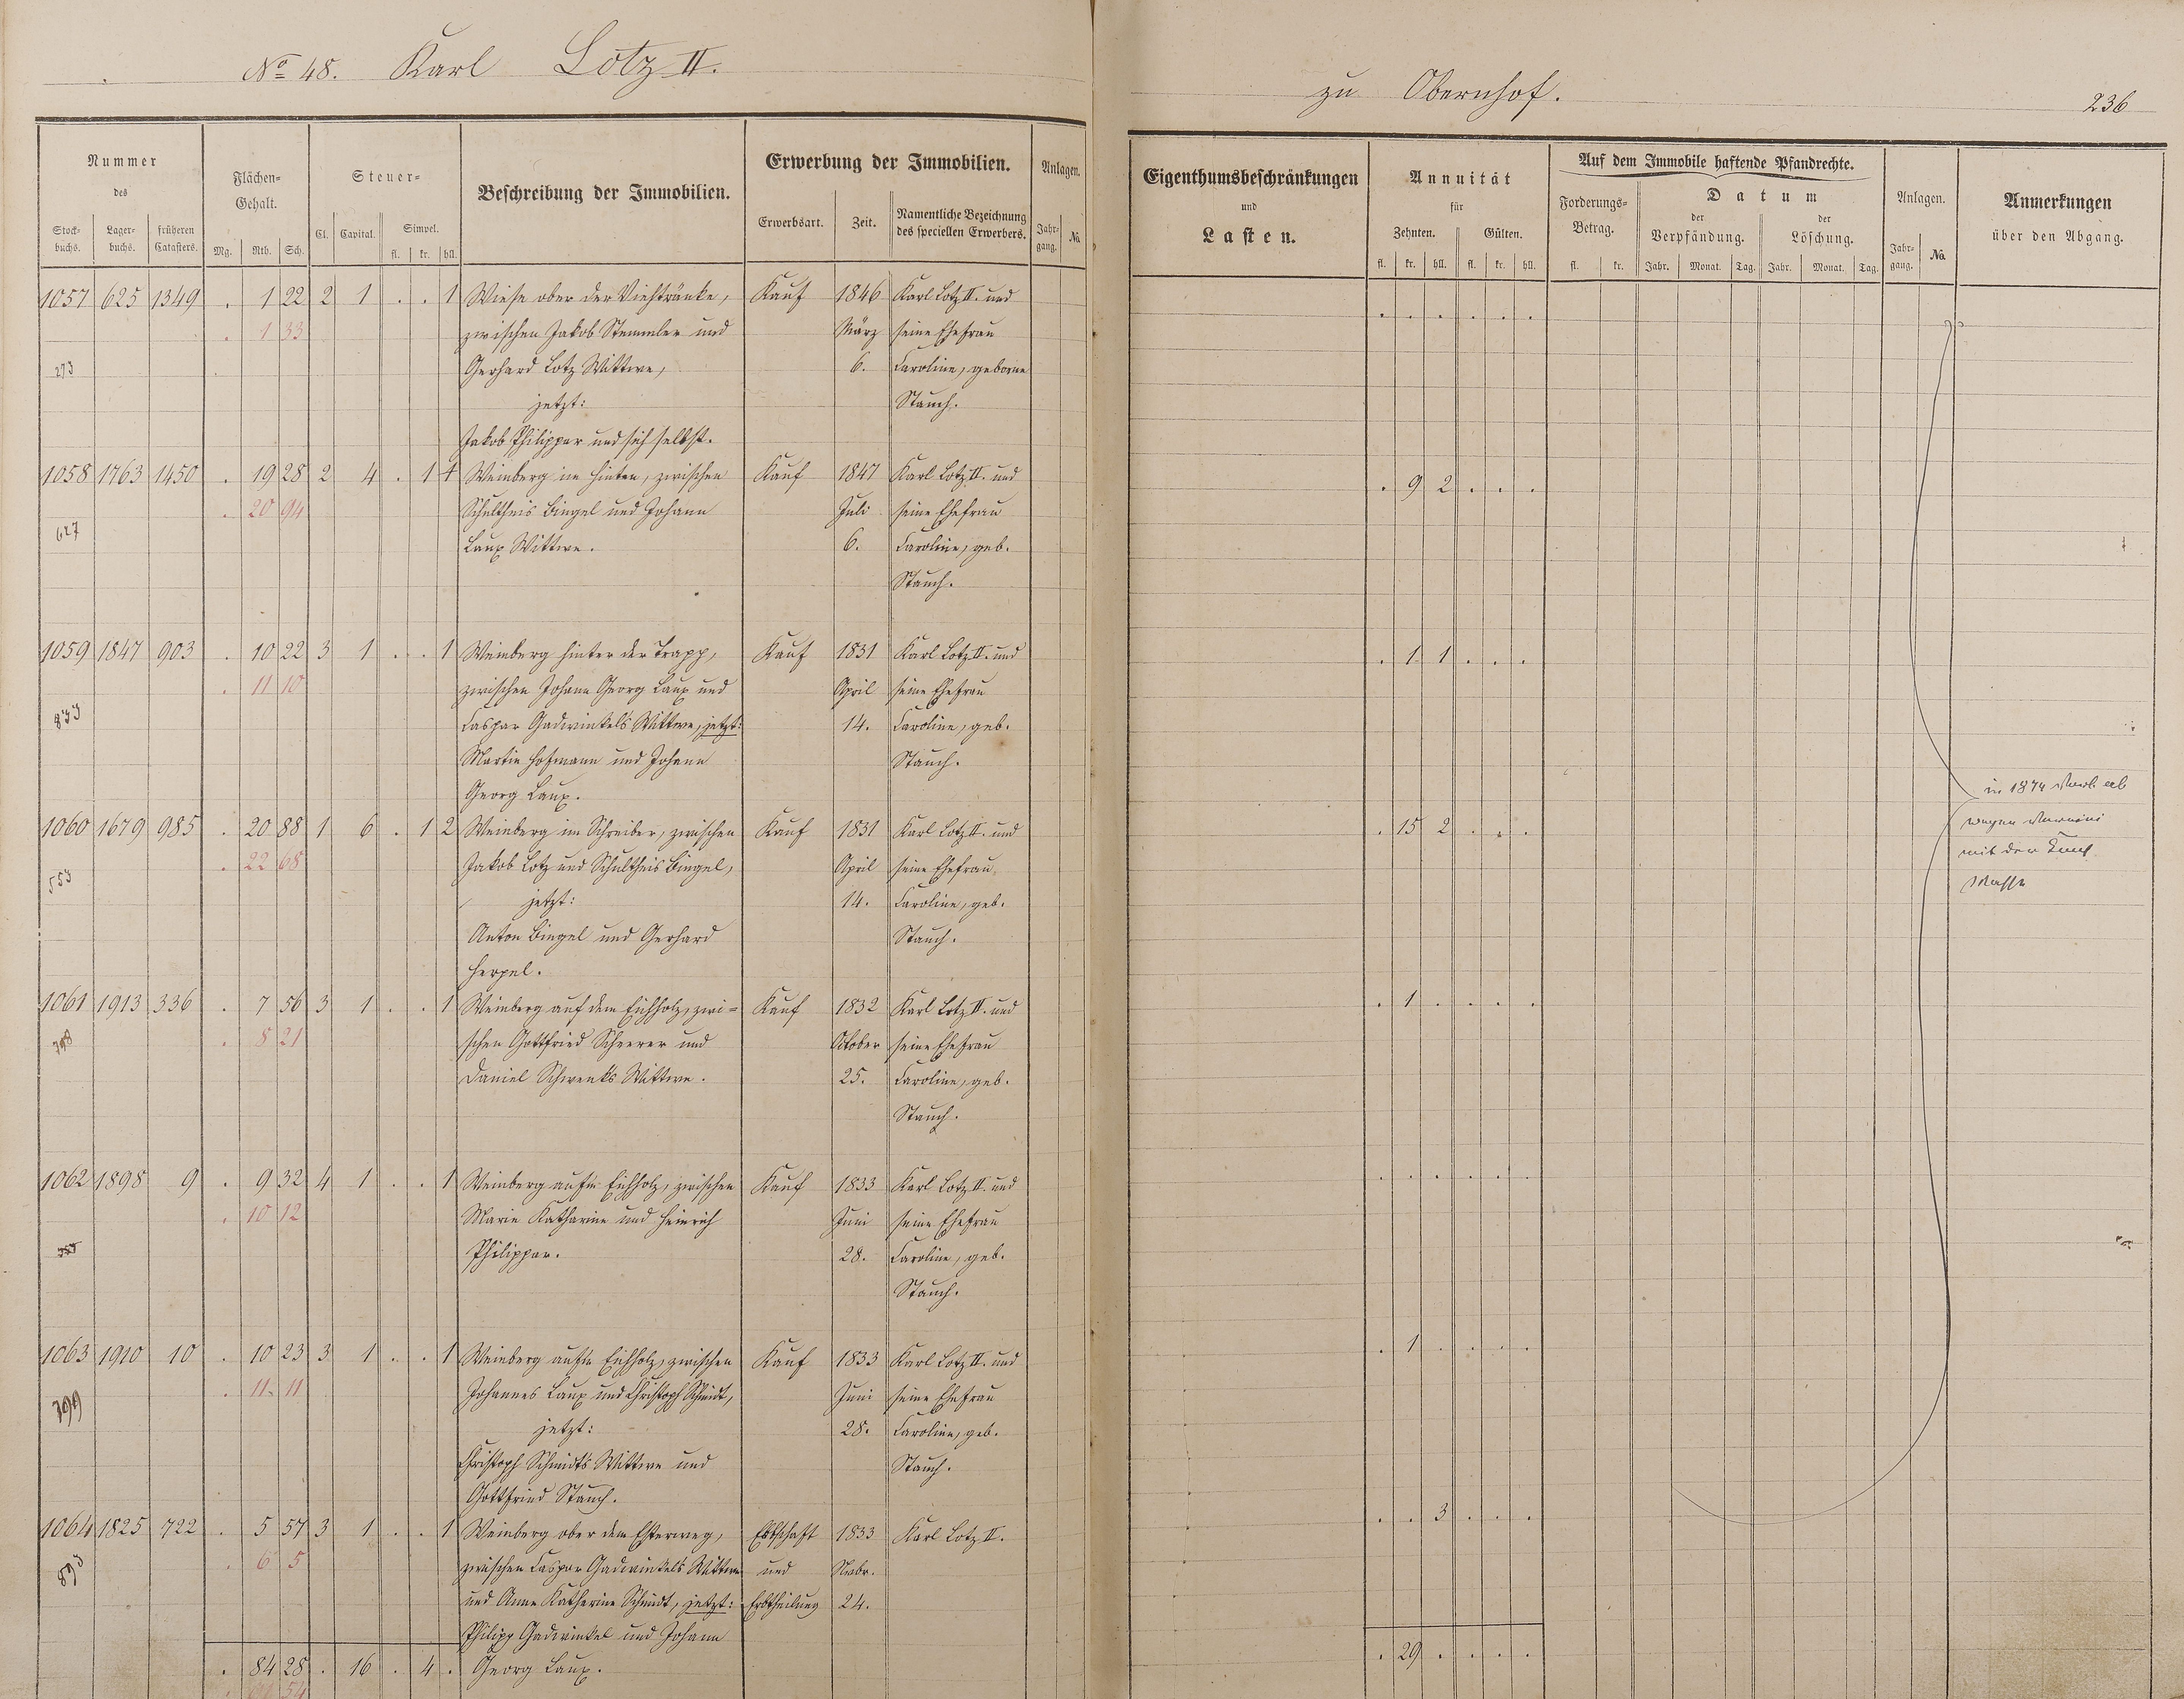 No 48. Karl Lotz II.
zu Obernhof.
236
Nummer des
Stock-buchs. Lager-buchs. früheren Catasters.
Flächen-Gehalt.
Mg. Rth. Sch.
Steuer-
Cl. Capital. Simpel.
fl. kr. hll.
Beschreibung der Immobilien.
Erwerbung der Immobilien.
Erwerbsart. Zeit. Namentliche Bezeichnung des speciellen Erwerbers.
Anlagen.
Jahr-gang. No.
Eigenthumsbeschränkungen und Lasten.
Annuität für
Zehnten. Gülten.
fl. kr. hll. fl. kr. hll.
Auf dem Immobile haftende Pfandrechte.
Forderungs-Betrag.
fl. kr.
Datum
der Verpfändung. der Löschung.
Jahr. Monat. Tag. Jahr. Monat. Tag.
Anlagen.
Jahr-gang. No.
Anmerkungen über den Abgang.
1057 625 1349 . 1 22 2 1 . . 1 Wiese ober der Viehtränke, Kauf 1846 Karl Lotz II. und . . . . . .
. 1 33 zwischen Jakob Stemmler und März seine Ehefrau
273 Gerhard Lotz Wittwe, 6. Caroline, geborne
jetzt: Stauch.
Jakob Philippar und sich selbst.
1058 1763 1450 . 19 28 2 4 . 1 1 Weinberg im Hinten, zwischen Kauf 1847 Karl Lotz II. und . 9 2 . . .
. 20 94 Schultheis Bingel und Johann Juli seine Ehefrau
627 Laux Wittwe. 6. Caroline, geb.
Stauch.
1059 1847 903 . 10 22 3 1 . . 1 Weinberg hinter der Trapp, Kauf 1831 Karl Lotz II. und . 1 1 . . .
. 11 10 zwischen Johann Georg Laux und April seine Ehefrau
833 Caspar Gadewinkels Wittwe, jetzt: 14. Caroline, geb.
Martin Hofmann und Johann Stauch.
Georg Laux.
in 1874
1060 1679 985 . 20 88 1 6 . 1 2 Weinberg im Schreiber, zwischen Kauf 1831 Karl Lotz II. und . 15 2 . . .
wegen
. 22 68 Jakob Lotz und Schultheis Bingel, April seine Ehefrau
mit der
553 jetzt: 14. Caroline, geb.
Masse
Anton Bingel und Gerhard Stauch.
Herpel.
1061 1913 336 . 7 56 3 1 . . 1 Weinberg auf dem Eichholz, zwi= Kauf 1832 Karl Lotz II. und . 1 . . . .
798 . 8 21 schen Gottfried Scherer und October seine Ehefrau
Daniel Schwenks Wittwe. 25. Caroline, geb.
Stauch.
1062 1898 9 . 9 32 4 1 . . 1 Weinberg aufm Eichholz, zwischen Kauf 1833 Karl Lotz II. und . . . . . .
. 10 12 Marie Katharine und Heinrich Juni seine Ehefrau
Philippar. 28. Caroline, geb.
Stauch.
1063 1910 10 . 10 23 3 1 . . 1 Weinberg aufm Eichholz, zwischen Kauf 1833 Karl Lotz II. und . 1 . . . .
799 . 11 11 Johannes Laux und Christoph Schmidt, Juni seine Ehefrau
jetzt: 28. Caroline, geb.
Christoph Schmidts Wittwe und Stauch.
Gottfried Stauch.
1064 1825 722 . 5 57 3 1 . . 1 Weinberg ober dem Esterweg, Erbschaft 1833 Karl Lotz II. . . 3 . . .
893 . 6 5 zwischen Caspar Gadewinkels Wittwe und Nvbr.
und Anna Katharine Schmidt, jetzt: Erbtheilung 24.
Philipp Gadewinkel und Johann
. 84 28 . 16 . 4 . Georg Laux. . 29 . . . .
54